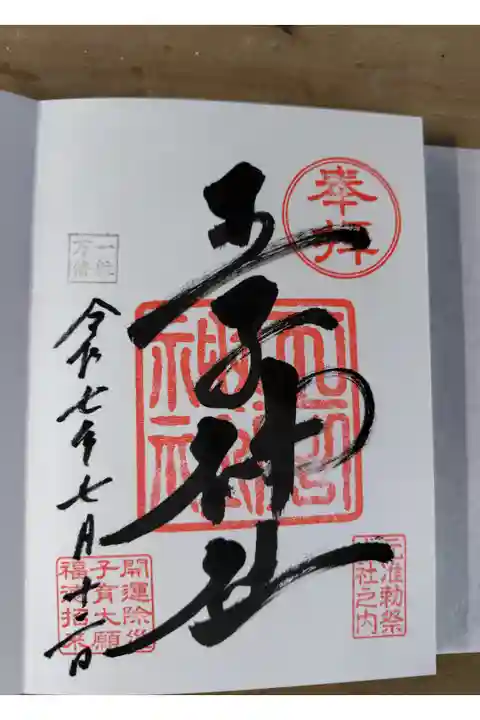 奉拝
王子神社
王子
神社
元准勅祭
十社之内
令和七年七月十二日
開運除災
子育大願
福徳招来